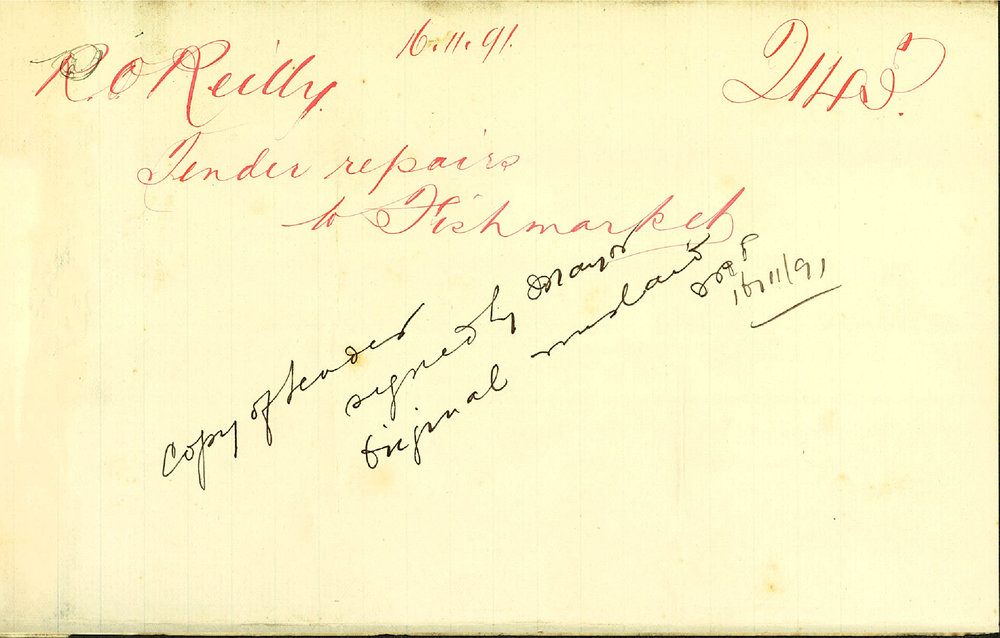 16.11.91.
R. O Reilly.
Tender repairs
to Fishmarket
Copy of tender
signed by Mayor
Original mislaid
16/11/91